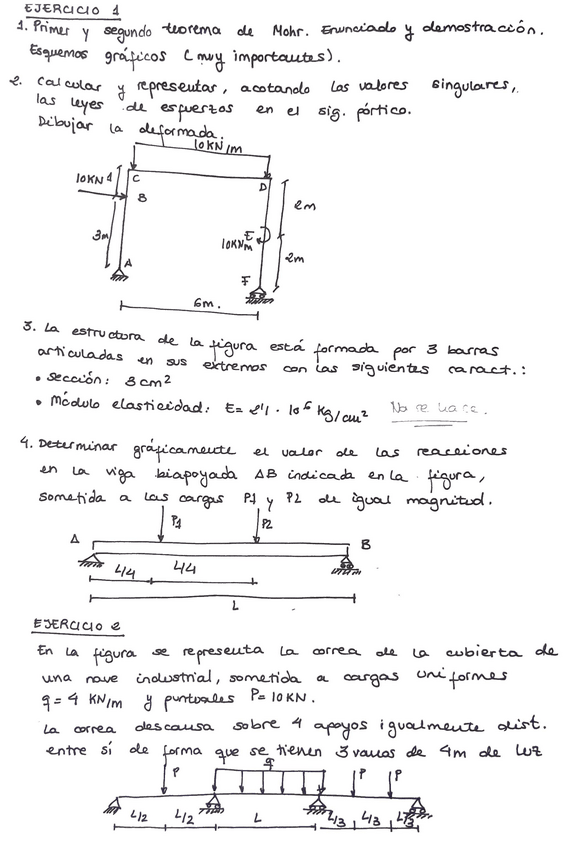 EJERCICIO 1
1. Primer y segundo teorema de Mohr. Enunciado y demostración.
Esquemas gráficos (muy importantes).
2. Calcular y representar, acotando los valores singulares,
las leyes de esfuerzos en el sig. pórtico.
Dibujar la deformada.
10KN/m
10KN
1
C
D
B
2m
3m
E
10KNm
A
2m
F
6m.
3. La estructura de la figura está formada por 3 barras
articuladas en sus extremos con las siguientes caract.:
• Sección: 3 cm²
• Módulo elasticidad: E= 2'1 · 10⁶ Kg/cm² No se hace.
4. Determinar gráficamente el valor de las reacciones
en la viga biapoyada AB indicada en la figura,
sometida a las cargas P1 y P2 de igual magnitud.
P1
P2
A
B
L/4
L/4
L
EJERCICIO 2
En la figura se representa la correa de la cubierta de
una nave industrial, sometida a cargas uniformes
q = 4 KN/m y puntuales P=10KN.
La correa descausa sobre 4 apoyos igualmente dist.
entre sí de forma que se tienen 3 vanos de 4m de luz
P
q
P
P
L/2
L/2
L
L/3
L/3
L/3